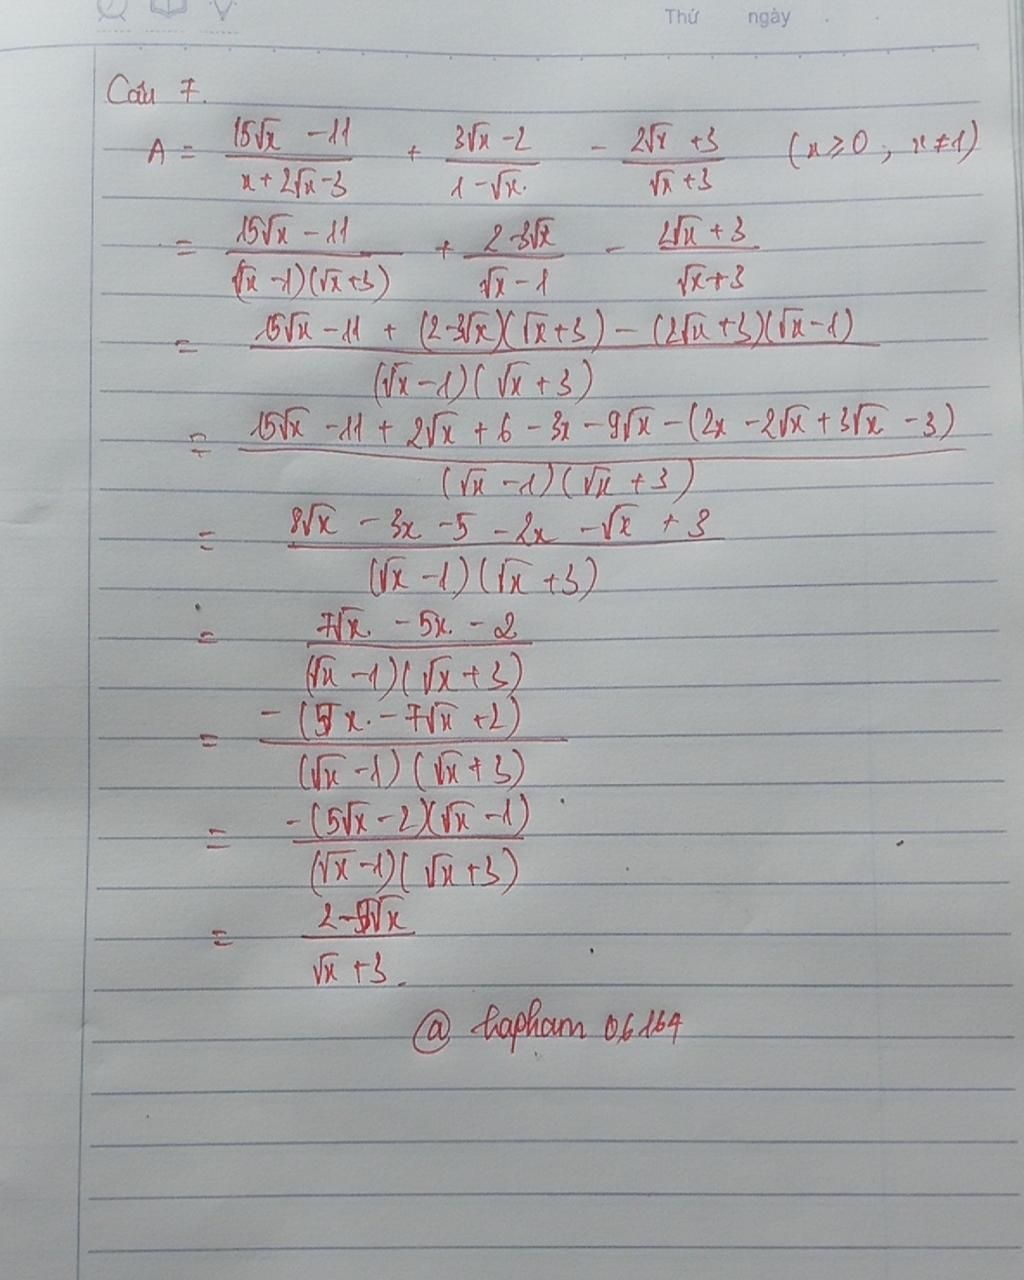 Thứ ngày
Câu 7.
A = (15√x - 11)/(x + 2√x - 3) + (3√x - 2)/(1 - √x) - (2√x + 3)/(√x + 3) (x ≥ 0, x ≠ 1)
= (15√x - 11)/((√x - 1)(√x + 3)) + (2 - 3√x)/(√x - 1) - (2√x + 3)/(√x + 3)
= (15√x - 11 + (2 - 3√x)(√x + 3) - (2√x + 3)(√x - 1))/((√x - 1)(√x + 3))
= (15√x - 11 + 2√x + 6 - 3x - 9√x - (2x - 2√x + 3√x - 3))/((√x - 1)(√x + 3))
= (8√x - 3x - 5 - 2x - √x + 3)/((√x - 1)(√x + 3))
= (7√x - 5x - 2)/((√x - 1)(√x + 3))
= -(5x - 7√x + 2)/((√x - 1)(√x + 3))
= -(5√x - 2)(√x - 1)/((√x - 1)(√x + 3))
= (2 - 5√x)/(√x + 3).
@ hapham 06164